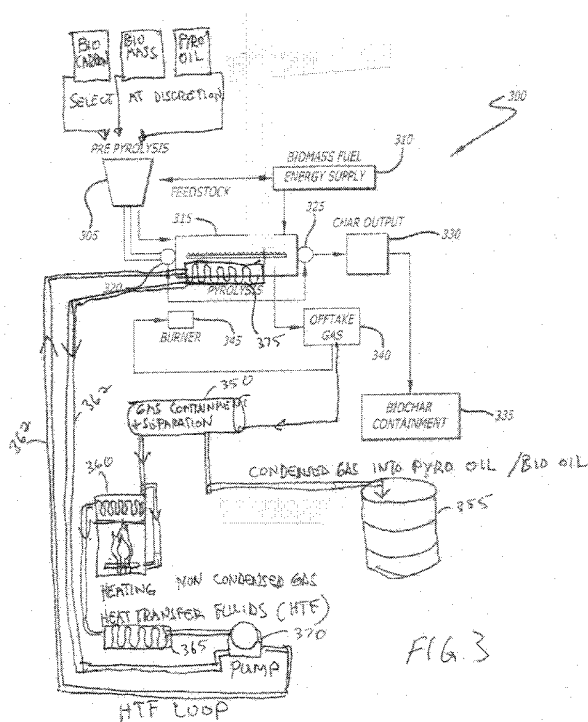 BIO
CARBON
BIO
MASS
PYRO
OIL
SELECT AT DISCRETION
300
PRE PYROLYSIS
305
FEEDSTOCK
BIOMASS FUEL
ENERGY SUPPLY
310
315
325
CHAR OUTPUT
330
320
PYROLYSIS
375
BURNER
345
OFFTAKE
GAS
340
350
GAS CONTAINMENT
+ SEPARATION
BIOCHAR
CONTAINMENT
335
362
362
360
CONDENSED GAS INTO PYRO OIL / BIO OIL
355
HEATING NON CONDENSED GAS
HEAT TRANSFER FLUIDS (HTF)
365
370
PUMP
HTF LOOP
FIG. 3